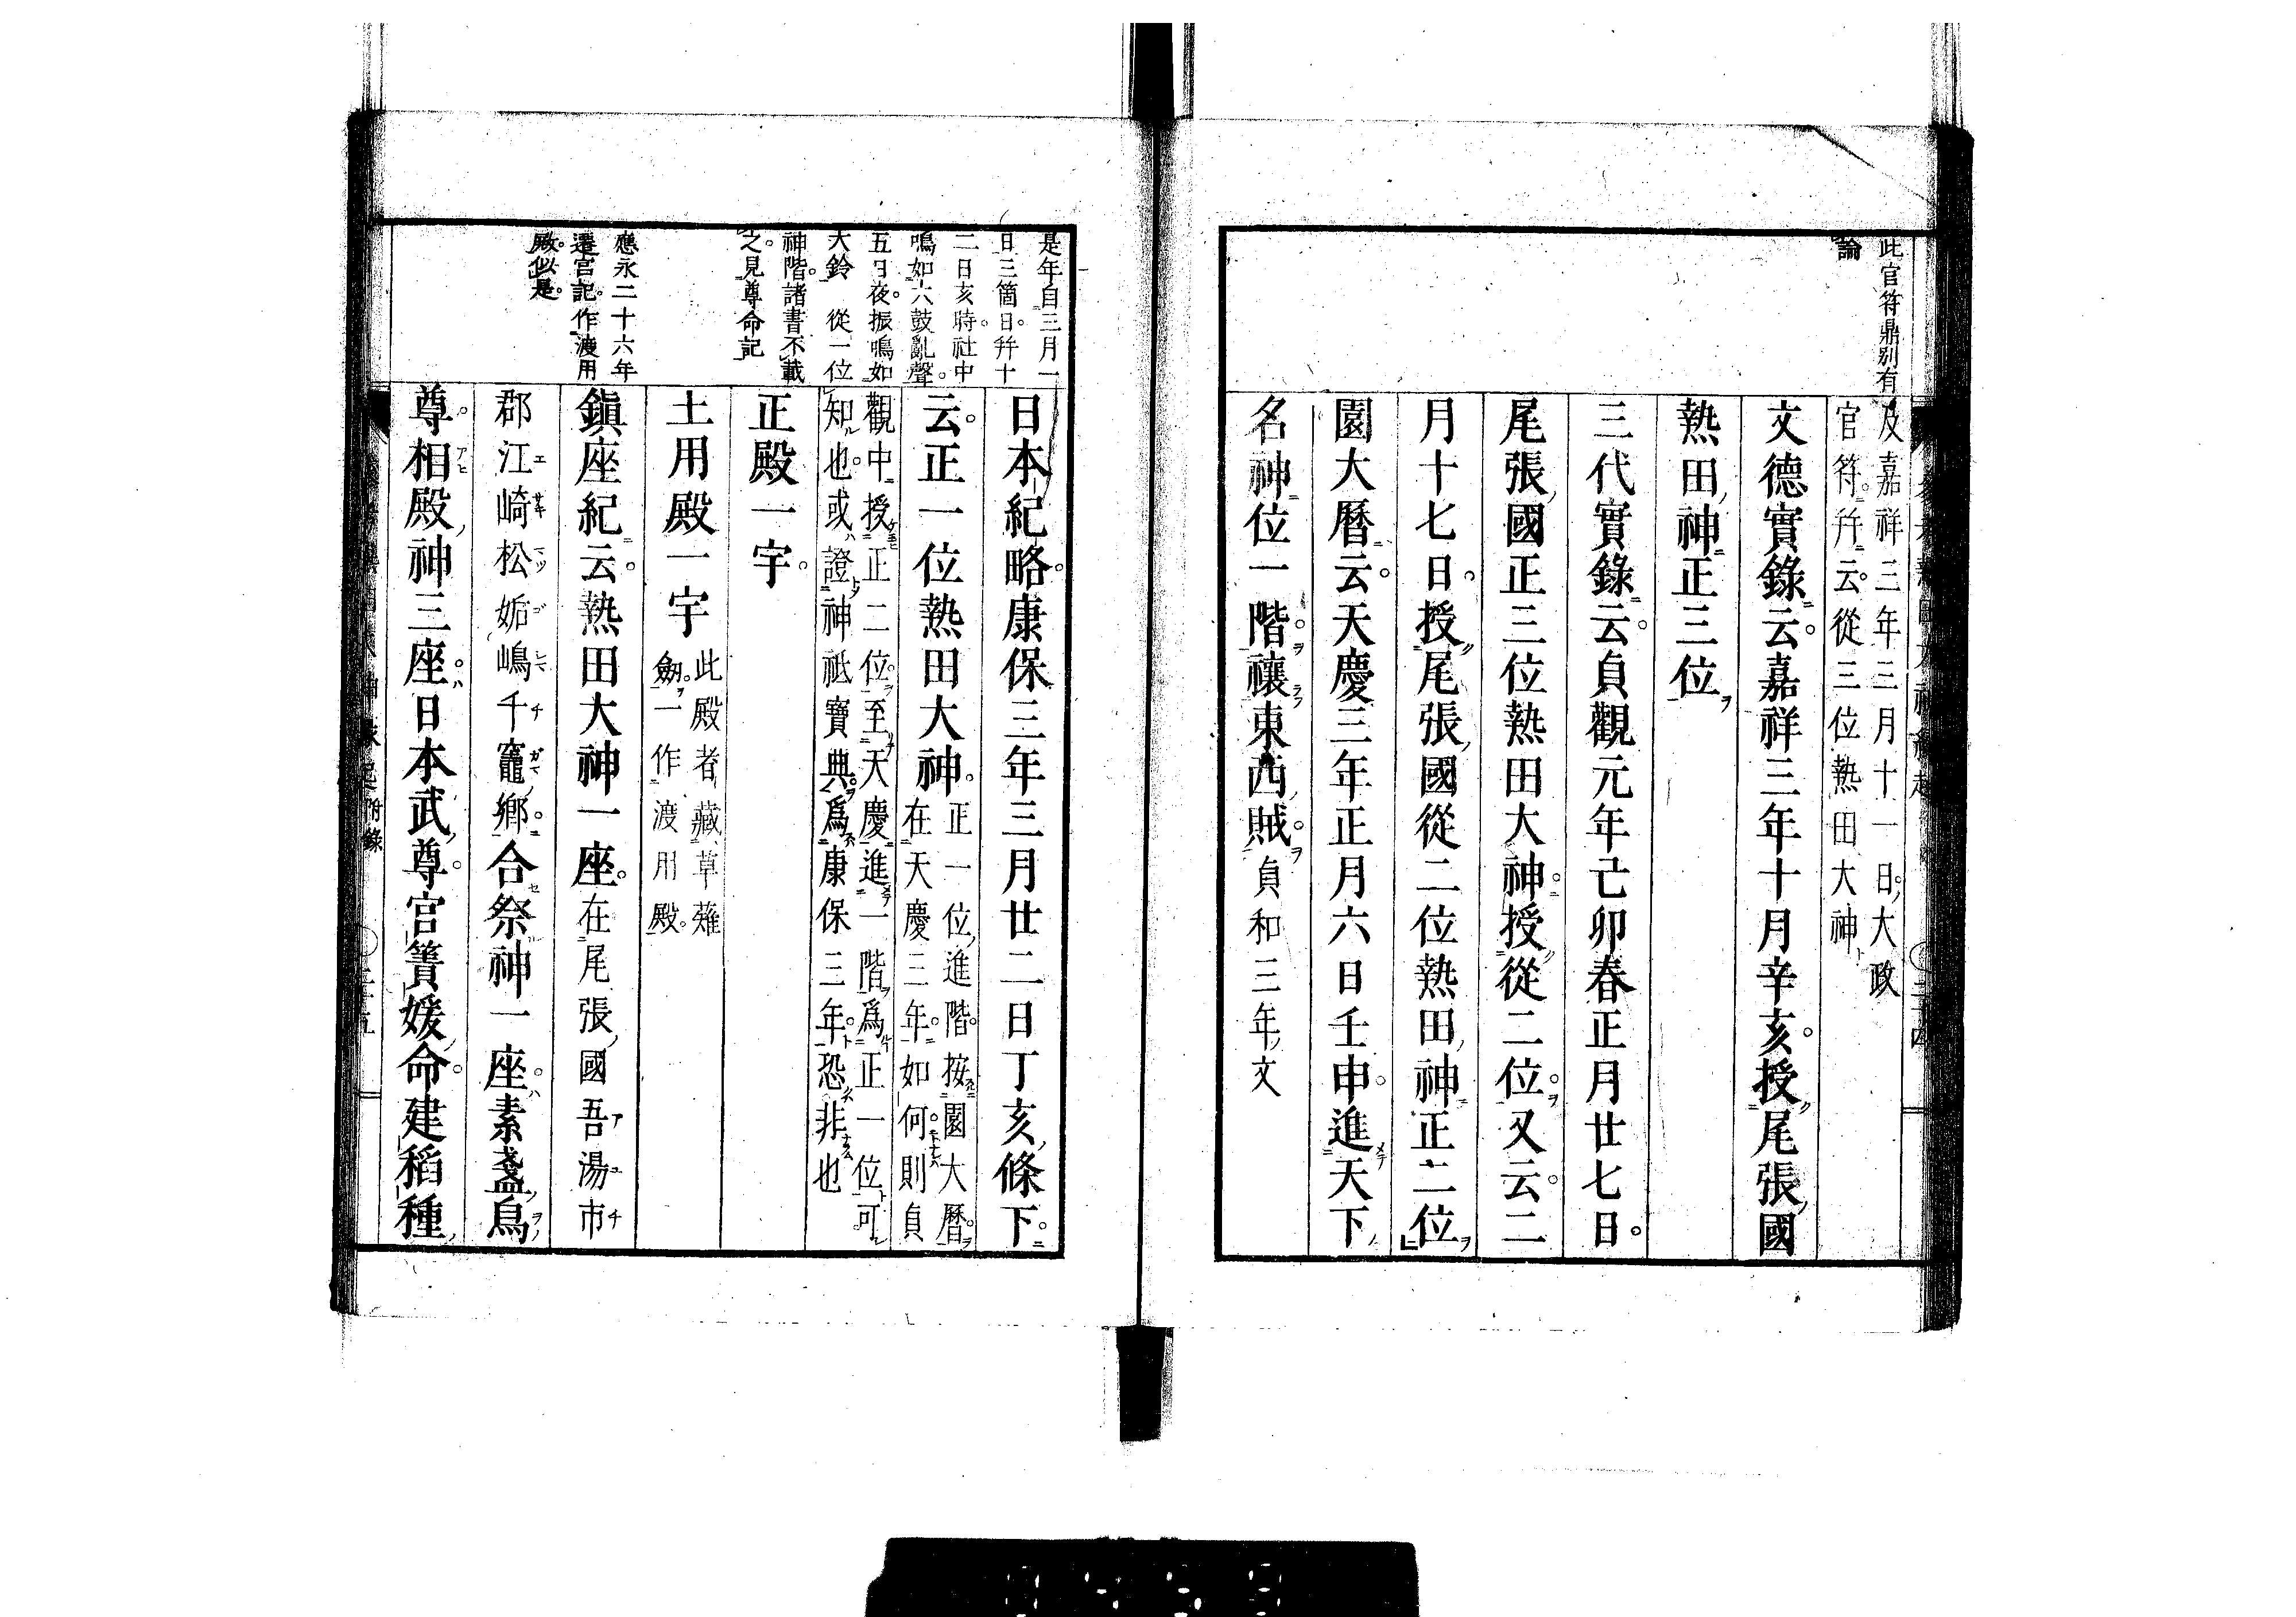 此官符鼎別有
論
及嘉祥三年三月十一日大政
官符幷云從三位熱田大神
文德實錄云嘉祥三年十月辛亥授尾張國
熱田神正三位
三代實錄云貞觀元年己卯春正月廿七日
尾張國正三位熱田大神授從二位又云二
月十七日授尾張國從二位熱田神正二位
園大曆云天慶三年正月六日壬申進天下
名神位一階禳東西賊貞和三年文
是年自三月一
日三箇日幷十
二日亥時社中
鳴如六鼓亂聲
五日夜振鳴如
大鈴 從一位
神階諸書不載
之見尊命記
應永二十六年
遷宮記作渡用
殿似是
日本紀略康保三年三月廿二日丁亥條下
云正一位熱田大神
正一位進階按園大曆
在天慶三年如何則貞
觀中授正二位至天慶進一階爲正一位可
知也或證神祇寶典爲康保三年恐非也
正殿一宇
土用殿一宇
此殿者藏草薙
劔一作渡用殿
鎭座紀云熱田大神一座在尾張國吾湯市
郡江崎松姤嶋千竈鄉合祭神一座素盞烏
尊相殿神三座日本武尊宮簀媛命建稻種